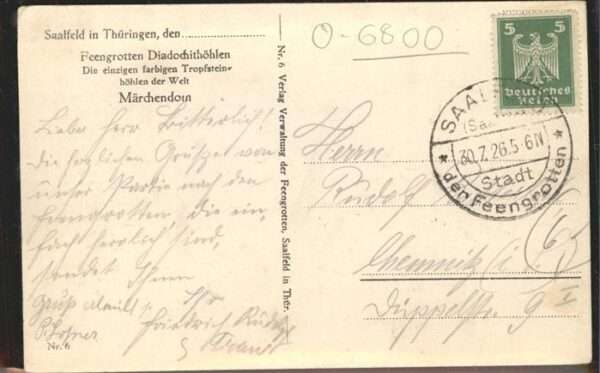 Saalfeld in Thüringen, den
Feengrotten Diadochithöhlen
Die einzigen farbigen Tropfstein-
höhlen der Welt
Märchendom
Lieber Herr
die herzlichen Grüße von
unser Partie nach den
Feengrotten, die ein-
fach herrlich sind,
sendet Ihnen
Ihr
Friedrich Rudolf
Nr. 6
Nr. 6 Verlag Verwaltung der Feengrotten, Saalfeld in Thür.
O-6800
5 5
Deutsches
Reich
SAAL
(Sa
30.7.26.5-6N
Stadt
der Feengrotten
Herrn
Rudolf
Chemnitz i/
Düppelstr. 9 I